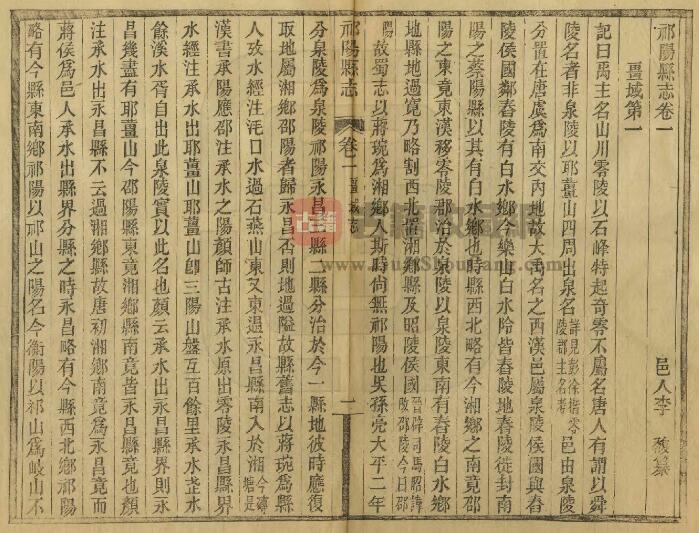 祁陽縣志卷一
邑人李馥纂
畺域第一
記曰禹主名山川零陵以石峰特起奇零不屬名唐人有謂以舜
陵名者非泉陵以耶薑山四周出泉名詳見彭徐楷零陵郡主名考邑由泉陵
分置在唐虞爲南交內地故大禹名之西漢邑屬泉陵侯國與舂
陵侯國鄰舂陵有白水鄉今樂山白水阾皆舂陵地舂陵徙封南
陽之蔡陽縣以其有白水鄉也時縣西北略有今湘鄉之南竟邵
陽之東竟東漢移零陵郡治於泉陵以泉陵東南有舂陵白水鄉
地縣地過寬乃略割西北置湘鄉縣及昭陵侯國晉辟司馬昭諱改邵陵今曰邵
陽故蜀志以蔣琬爲湘鄉人斯時尚無祁陽也吳孫亮大平二年
祁陽縣志
卷一畺域志
一
分泉陵爲泉陵祁陽永昌三縣二縣分治於今一縣地彼時應復
取地屬湘鄉邵陽者歸永昌否則地過隘故縣舊志以蔣琬爲縣
人攷水經注浘口水過石燕山東又東逕永昌縣南入於湘今礴塘是
漢書承陽應邵注承水之陽顏師古注承水原出零陵永昌縣界
水經注承水出耶薑山耶薑山卽三陽山盤互百餘里承水芷水
餘溪水胥自出此泉陵實以此名也顏云承水出永昌縣界則永
昌幾盡有耶薑山今邵陽縣東竟湘鄉縣南竟皆永昌縣竟也顏
注承水出永昌縣不云過湘鄉縣故唐初湘鄉南竟爲永昌竟而
蔣侯爲邑人承水出縣界分縣之時永昌略有今縣西北鄉祁陽
略有今縣東南鄉祁陽以祁山之陽名今衡陽以祁山爲岐山不
古籍
www.gujiShouCang.com